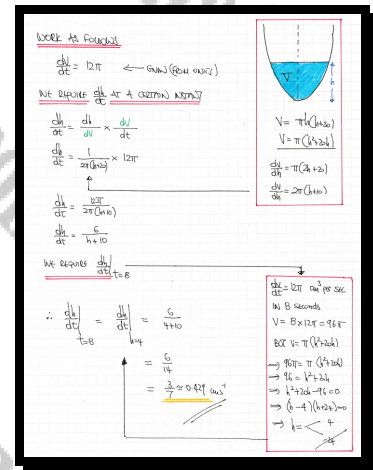 WORK AS FOLLOWS
dV/dt = 12π ← GIVEN (FROM UNITS)
WE REQUIRE dh/dt AT A CERTAIN INSTANT
dh/dt = dh/dV × dV/dt
dh/dt = 1/2π(h+10) × 12π
dh/dt = 12π/2π(h+10)
dh/dt = 6/h+10
WE REQUIRE dh/dt|t=8
∴ dh/dt|t=8 = dh/dt|h=4 = 6/4+10
= 6/14
= 3/7 ≈ 0.429 cms⁻¹
V
h
V = πh(h+20)
V = π(h²+20h)
dV/dh = π(2h+20)
dV/dh = 2π(h+10)
dV/dt = 12π cm³ per sec
IN 8 seconds
V = 8×12π = 96π
BUT V = π(h²+20h)
⇒ 96π = π(h²+20h)
⇒ 96 = h²+20h
⇒ h²+20h-96=0
⇒ (h-4)(h+24)=0
⇒ h = < 4
-24